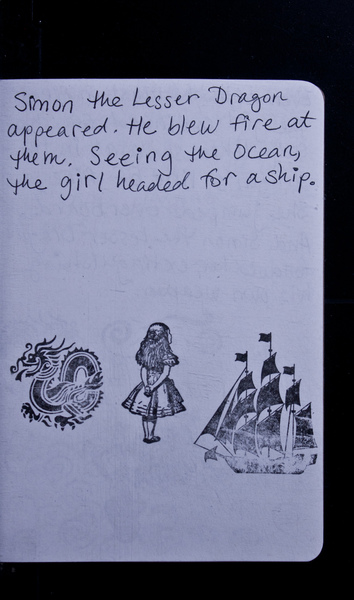 Simon the Lesser Dragon
appeared. He blew fire at
them. Seeing the Ocean,
the girl headed for a ship.